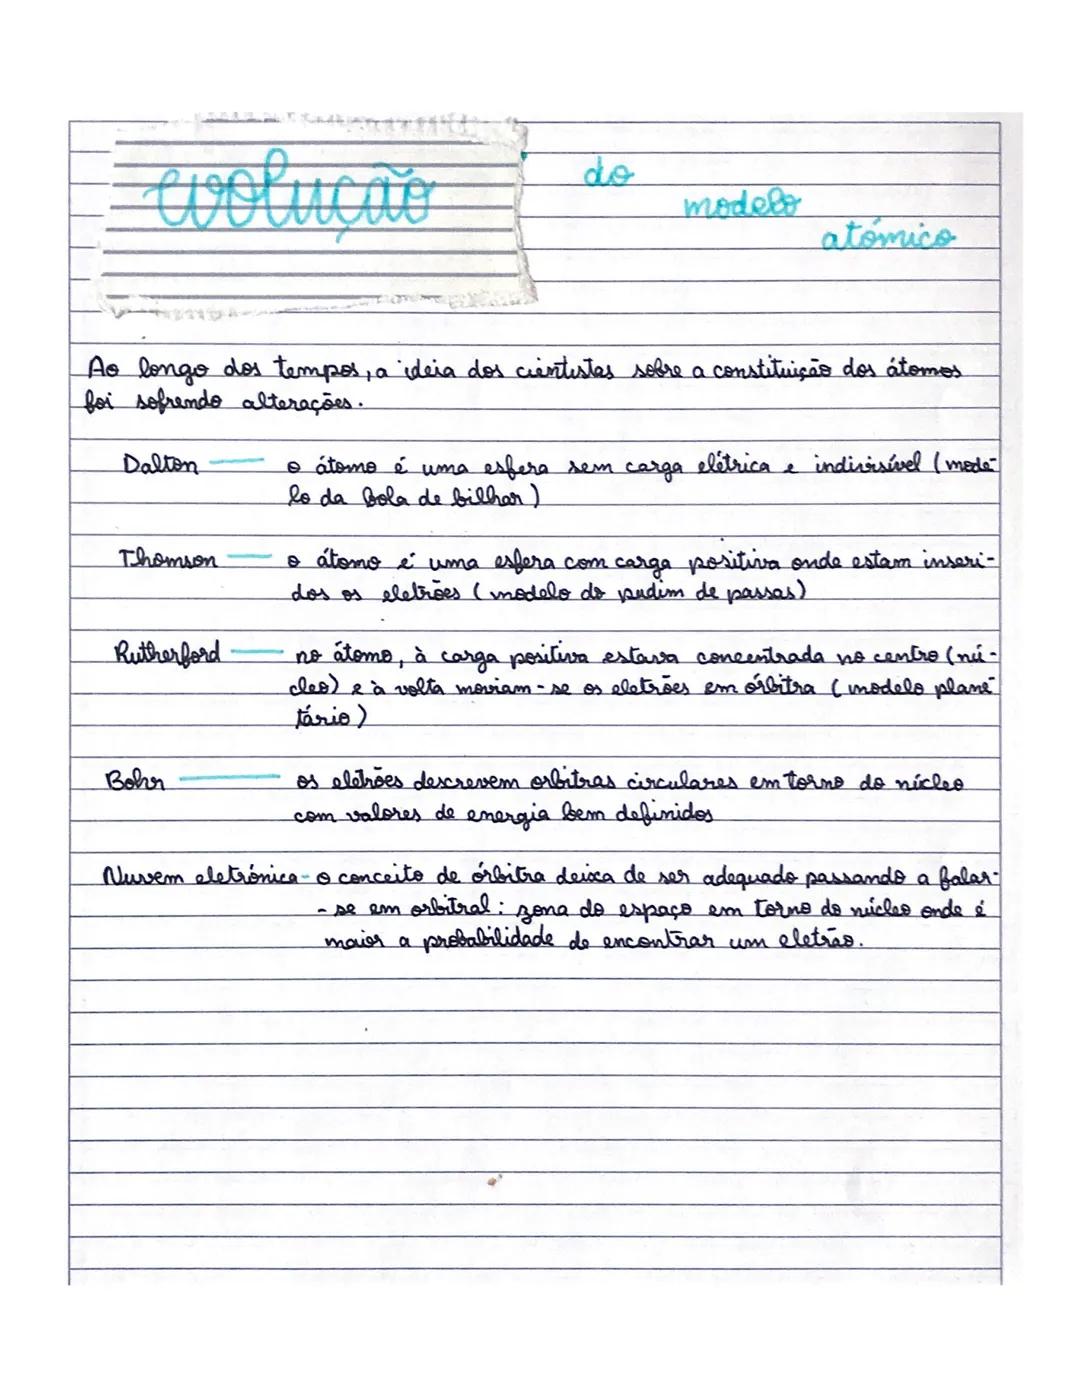 evolução
do
modelo
atómico
Ao longo dos tempos, a ideia dos cientistas sobre a constituição dos átomos
foi sofrendo alterações.
Dalton — o átomo é uma esfera sem carga elétrica e indivisível (mode-
lo da bola de bilhar)
Thomson — o átomo é uma esfera com carga positiva onde estam inseri-
dos os eletrões (modelo do pudim de passas)
Rutherford — no átomo, à carga positiva estava concentrada no centro (nú-
cleo) e à volta moviam-se os eletrões em órbitra (modelo plane-
tário)
Bohr — os eletrões descrevem orbitras circulares em torno do núcleo
com valores de energia bem definidos
Nuvem eletrónica - o conceito de órbitra deixa de ser adequado passando a falar-
-se em orbitral: zona do espaço em torno do núcleo onde é
maior a probabilidade de encontrar um eletrão.